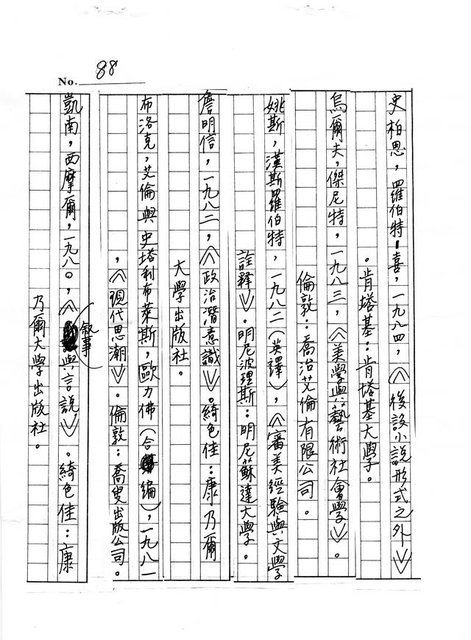 No. 88
史柏思,羅伯特-喜,一九八四,《後設小說形式之外》
。肯塔基:肯塔基大學。
烏爾夫,傑尼特,一九八三,《美學與藝術社會學》。
倫敦:喬治艾倫有限公司。
姚斯,漢斯羅伯特,一九八二(英譯),《審美經驗與文學
詮釋》。明尼波理斯:明尼蘇達大學。
詹明信,一九八二,《政治潛意識》。綺色佳:康乃爾
大學出版社。
布洛克,艾倫與史塔利布萊斯,歐力佛(合編),一九八一
,《現代思潮》。倫敦:喬叟出版公司。
凱南,西摩爾,一九八〇,《敘事與言說》。綺色佳:康
乃爾大學出版社。